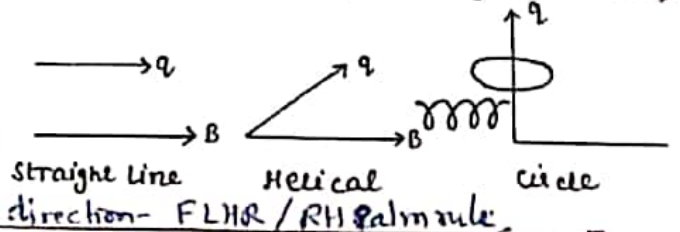 q
q
q
B
B
Straight Line Helical Circle
direction- FLHR / RH Palm rule